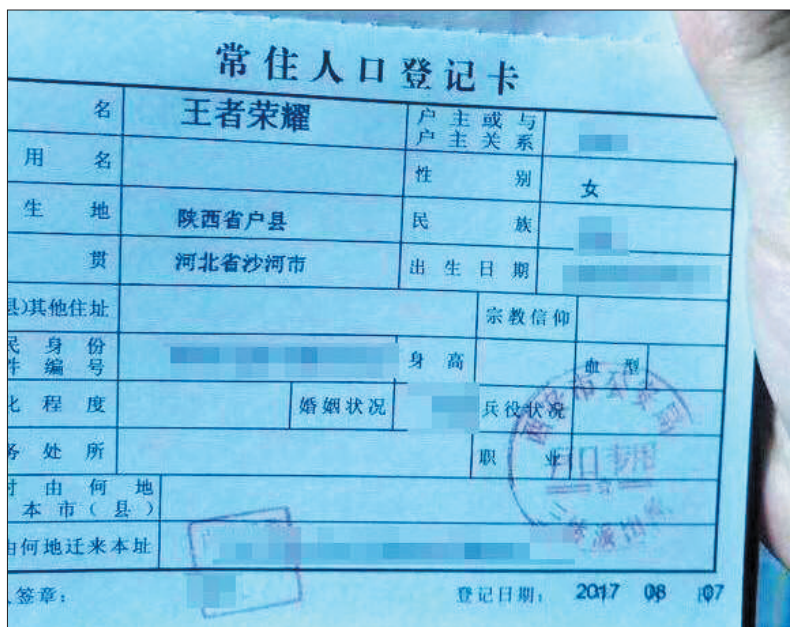 常住人口登记卡
名 王者荣耀 户主或与户主关系
用名 性别 女
生地 陕西省户县 民族
贯 河北省沙河市 出生日期
县)其他住址 宗教信仰
民身份件编号 身高 血型
化程度 婚姻状况 兵役状况
务处所 职业
时由何地本市(县)
由何地迁来本址
人签章: 登记日期: 2017 08 07
西安市公安局
户口专用
派出所